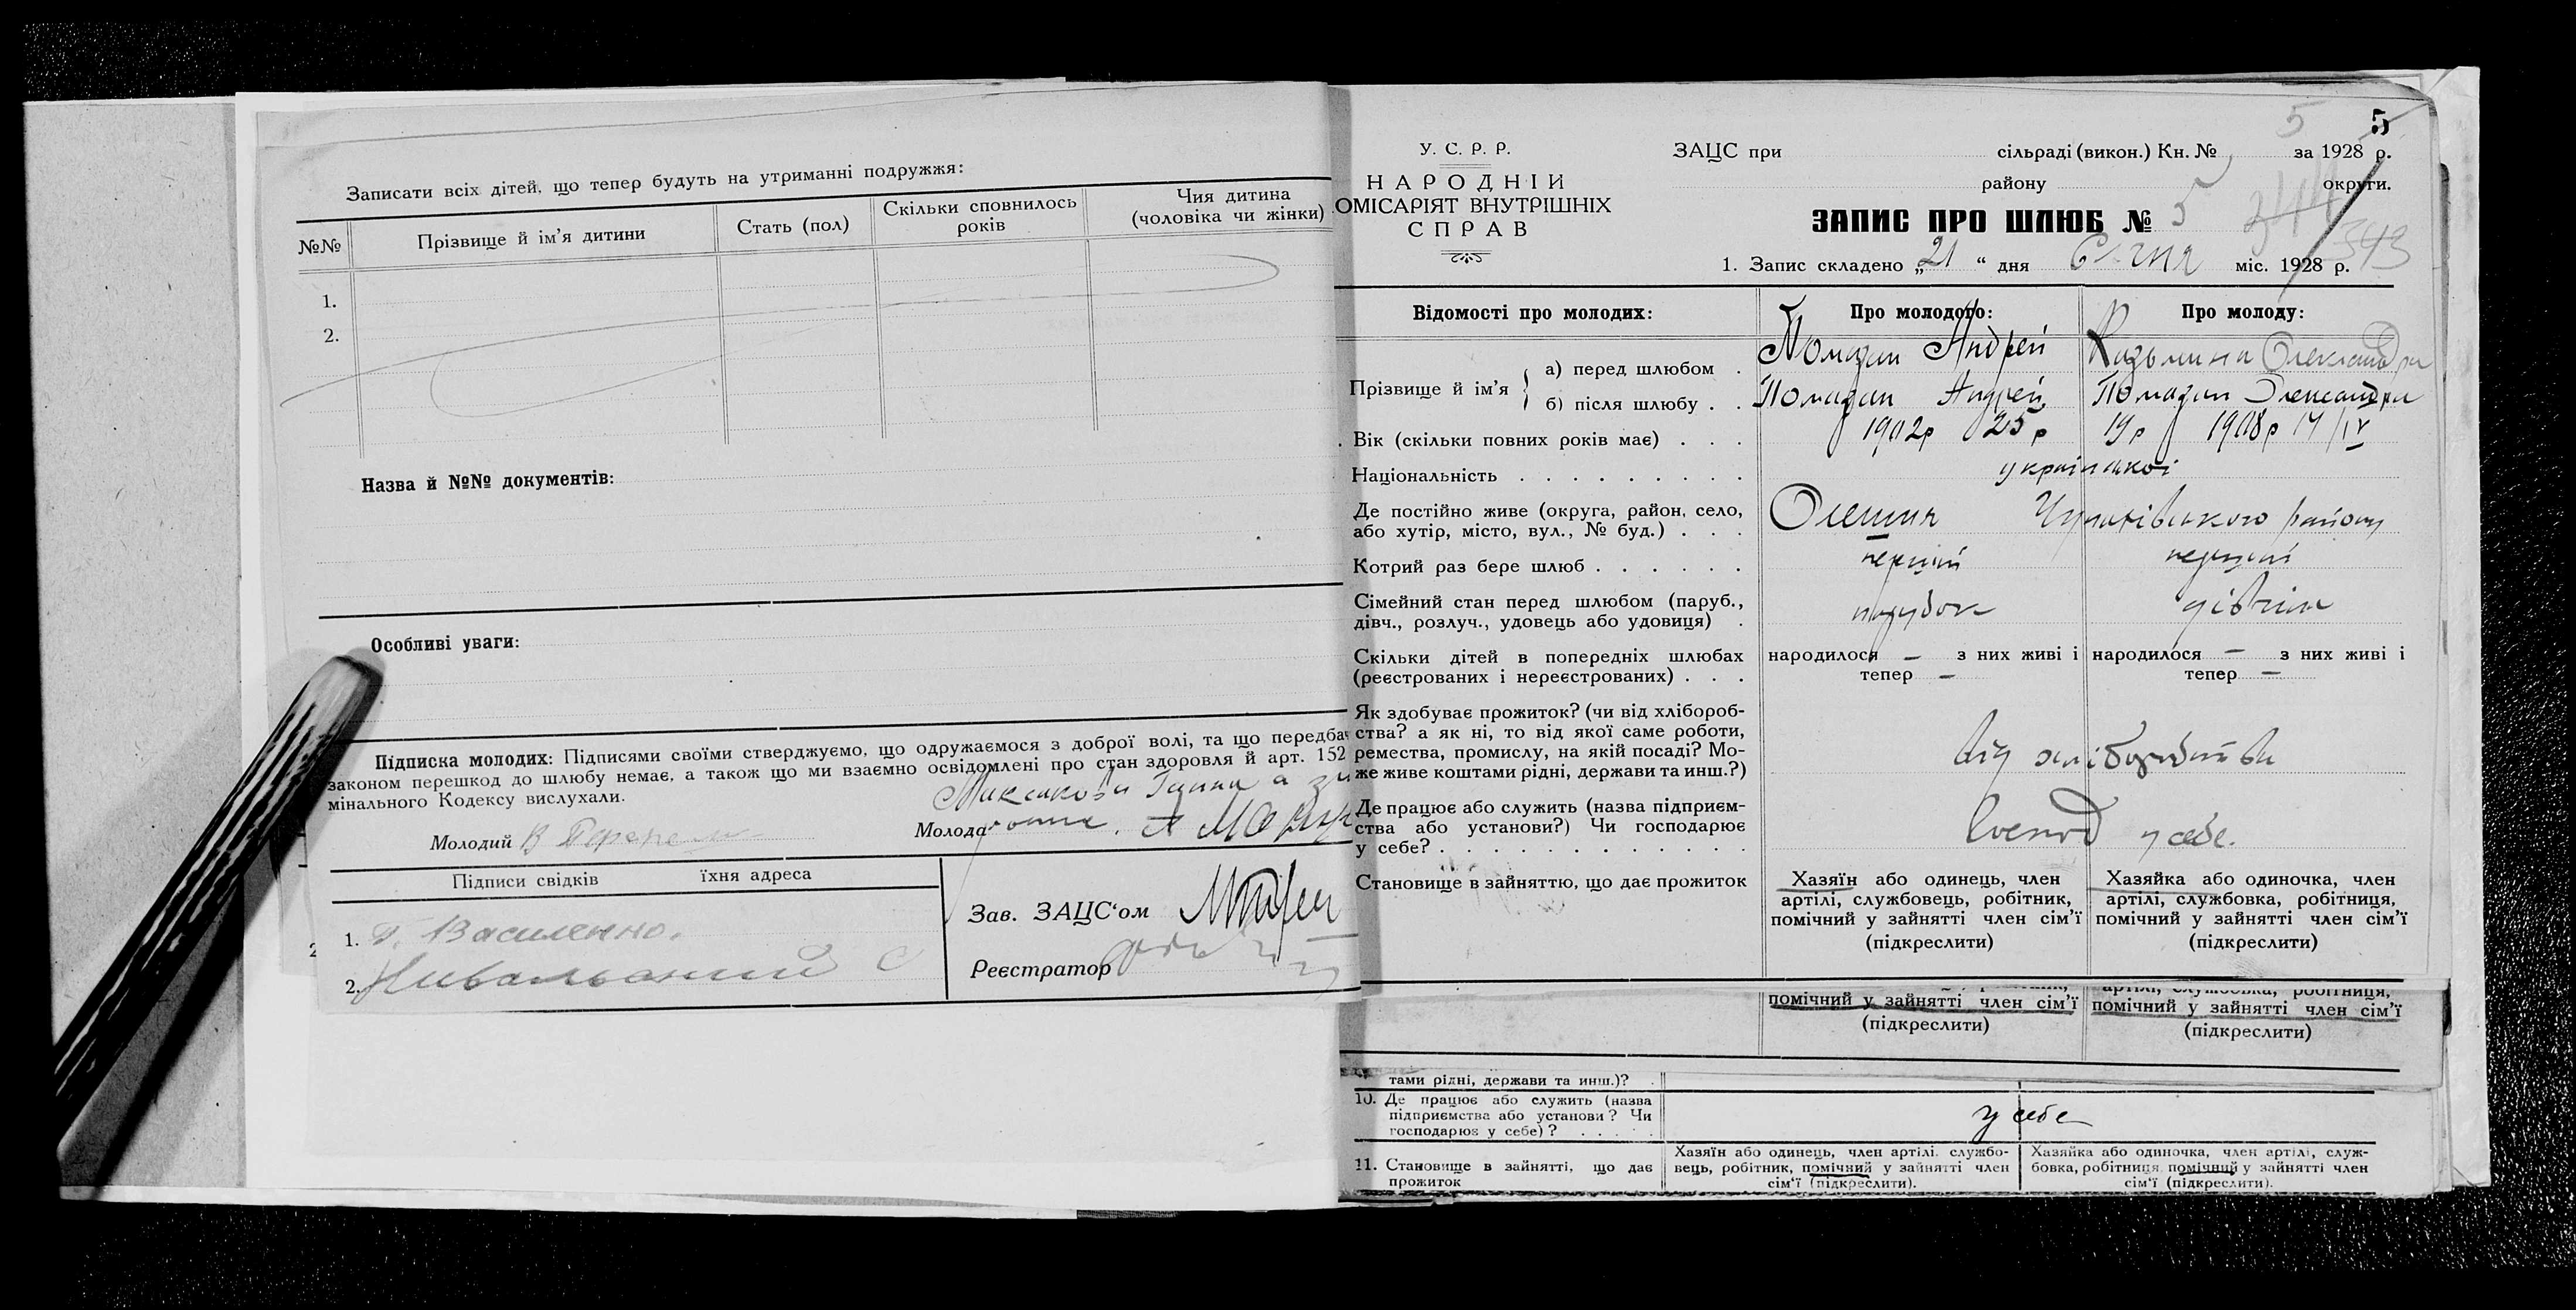 Записати всіх дітей, що тепер будуть на утриманні подружжя:
№№
Прізвище й ім'я дитини
Стать (пол)
Скільки сповнилось
років
Чия дитина
(чоловіка чи жінки)
1.
2.
Назва й №№ документів:
Особливі уваги:
Підписка молодих: Підписями своїми стверджуємо, що одружаємося з доброї волі, та що передбач
законом перешкод до шлюбу немає, а також що ми взаємно освідомлені про стан здоровля й арт. 152
мінального Кодексу вислухали.
Молодий В
Молода
Підписи свідків їхня адреса
1. Василенно.
2.
Зав. ЗАЦС'ом
Реєстратор
5 5
У. С. Р. Р.
НАРОДНІЙ
ОМІСАРІЯТ ВНУТРІШНІХ
СПРАВ
ЗАЦС при сільраді (викон.) Кн. № за 1928 р.
району округи.
ЗАПИС ПРО ШЛЮБ № 5 344
343
1. Запис складено „21“ дня Січня міс. 1928 р.
Відомості про молодих:
Про молодого:
Про молоду:
Прізвище й ім'я
а) перед шлюбом .
Помазан Андрей
Кузьмина Олександра
б) після шлюбу . .
Помазан Андрей
Помазан Олександра
Вік (скільки повних років має) . . .
1902р 25р
19р 1908р 14/IV
Національність . . . . . . . . .
української
Де постійно живе (округа, район, село,
або хутір, місто, вул., № буд.) . . .
Олешня Чупахівського району
Котрий раз бере шлюб . . . . . .
перший
перший
Сімейний стан перед шлюбом (паруб.,
дівч., розлуч., удовець або удовиця) .
парубок
дівчина
Скільки дітей в попередніх шлюбах
(реєстрованих і нереєстрованих) . . .
народилося — з них живі і
тепер —
народилося — з них живі і
тепер —
Як здобуває прожиток? (чи від хлібороб-
ства? а як ні, то від якої саме роботи,
ремества, промислу, на якій посаді? Мо-
же живе коштами рідні, держави та инш.?)
від хліборобства
Де працює або служить (назва підприєм-
ства або установи?) Чи господарює
у себе? . . . . . . . . . . . . .
господ у себе.
Становище в зайняттю, що дає прожиток
Хазяїн або одинець, член
артілі, службовець, робітник,
помічний у зайнятті член сім'ї
(підкреслити)
Хазяйка або одиночка, член
артілі, службовка, робітниця,
помічний у зайнятті член сім'ї
(підкреслити)
помічний у зайнятті член сім'ї
(підкреслити)
артілі, службовка, робітниця,
помічний у зайнятті член сім'ї
(підкреслити)
тами рідні, держави та инш.)?
10. Де працює або служить (назва
підприємства або установи? Чи
господарює у себе)? . . . . .
у себе
11. Становище в зайнятті, що дає
прожиток
Хазяїн або одинець, член артілі, службо-
вець, робітник, помічний у зайнятті член
сім'ї (підкреслити).
Хазяйка або одиночка, член артілі, служ-
бовка, робітниця, помічний у зайнятті член
сім'ї (підкреслити).